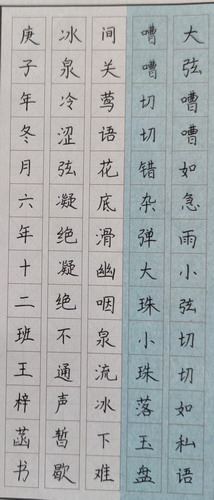 大弦嘈嘈如急雨小弦切切如私语
嘈嘈切切错杂弹大珠小珠落玉盘
间关莺语花底滑幽咽泉流冰下难
冰泉冷涩弦凝绝凝绝不通声暂歇
庚子年冬月六年十二班王梓菡书